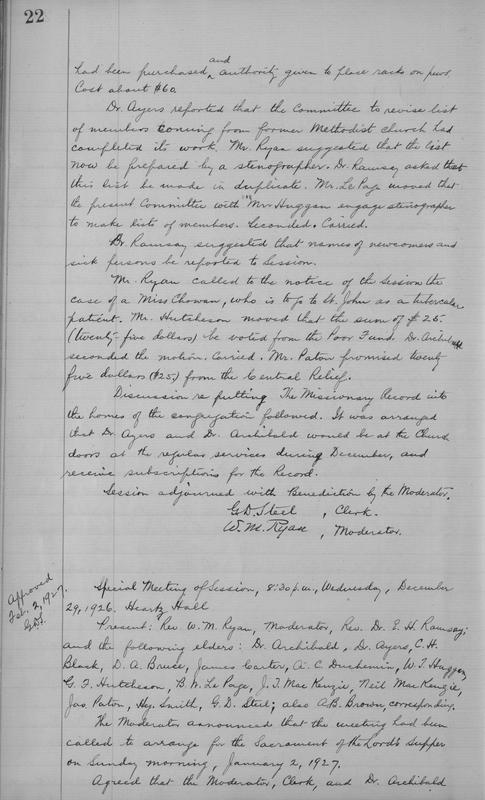 22
had been purchased, and authority given to place racks on pews.
Cost about $60.
Dr. Ayers reported that the Committee to revise list
of members coming from former Methodist church had
completed its work. Mr. Ryan suggested that the list
now be prepared by a stenographer. Dr. Ramsay asked that
this list be made in duplicate. Mr. Le Page moved that
the present Committee with Mr. Huggan engage stenographer
to make lists of members. Seconded. Carried.
Dr. Ramsay suggested that names of newcomers and
sick persons be reported to Session.
Mr. Ryan called to the notice of the Session the
case of a Miss Chowan, who is to go to St. John as a tubercular
patient. Mr. Hutcheson moved that the sum of $25.
(twenty-five dollars) be voted from the Poor Fund. Dr. Archibald
seconded the motion. Carried. Mr. Paton promised twenty
five dollars ($25) from the Central Relief.
Discussion re putting The Missionary Record into
the homes of the congregation followed. It was arranged
that Dr. Ayers and Dr. Archibald would be at the Church
doors at the regular services during December, and
receive subscriptions for the Record.
Session adjourned with Benediction by the Moderator.
G. D. Steel, Clerk.
W. M. Ryan, Moderator.
Approved
Feb. 2, 1927.
G.D.S.
Special Meeting of Session, 8:30 p.m., Wednesday, December
29, 1926. Heartz Hall
Present: Rev. W. M. Ryan, Moderator, Rev. Dr. E. H. Ramsay;
and the following elders: Dr. Archibald, Dr. Ayers, C. H.
Black, D. A. Bruce, James Carter, A. C. Duchemin, W. T. Huggan,
G. F. Hutcheson, B. W. Le Page, J. T. MacKenzie, Neil MacKenzie,
Jas Paton, Hy. Smith, G. D. Steel; also A.B. Brown, corresponding.
The Moderator announced that the meeting had been
called to arrange for the Sacrament of the Lord's Supper
on Sunday morning, January 2, 1927.
Agreed that the Moderator, Clerk, and Dr. Archibald